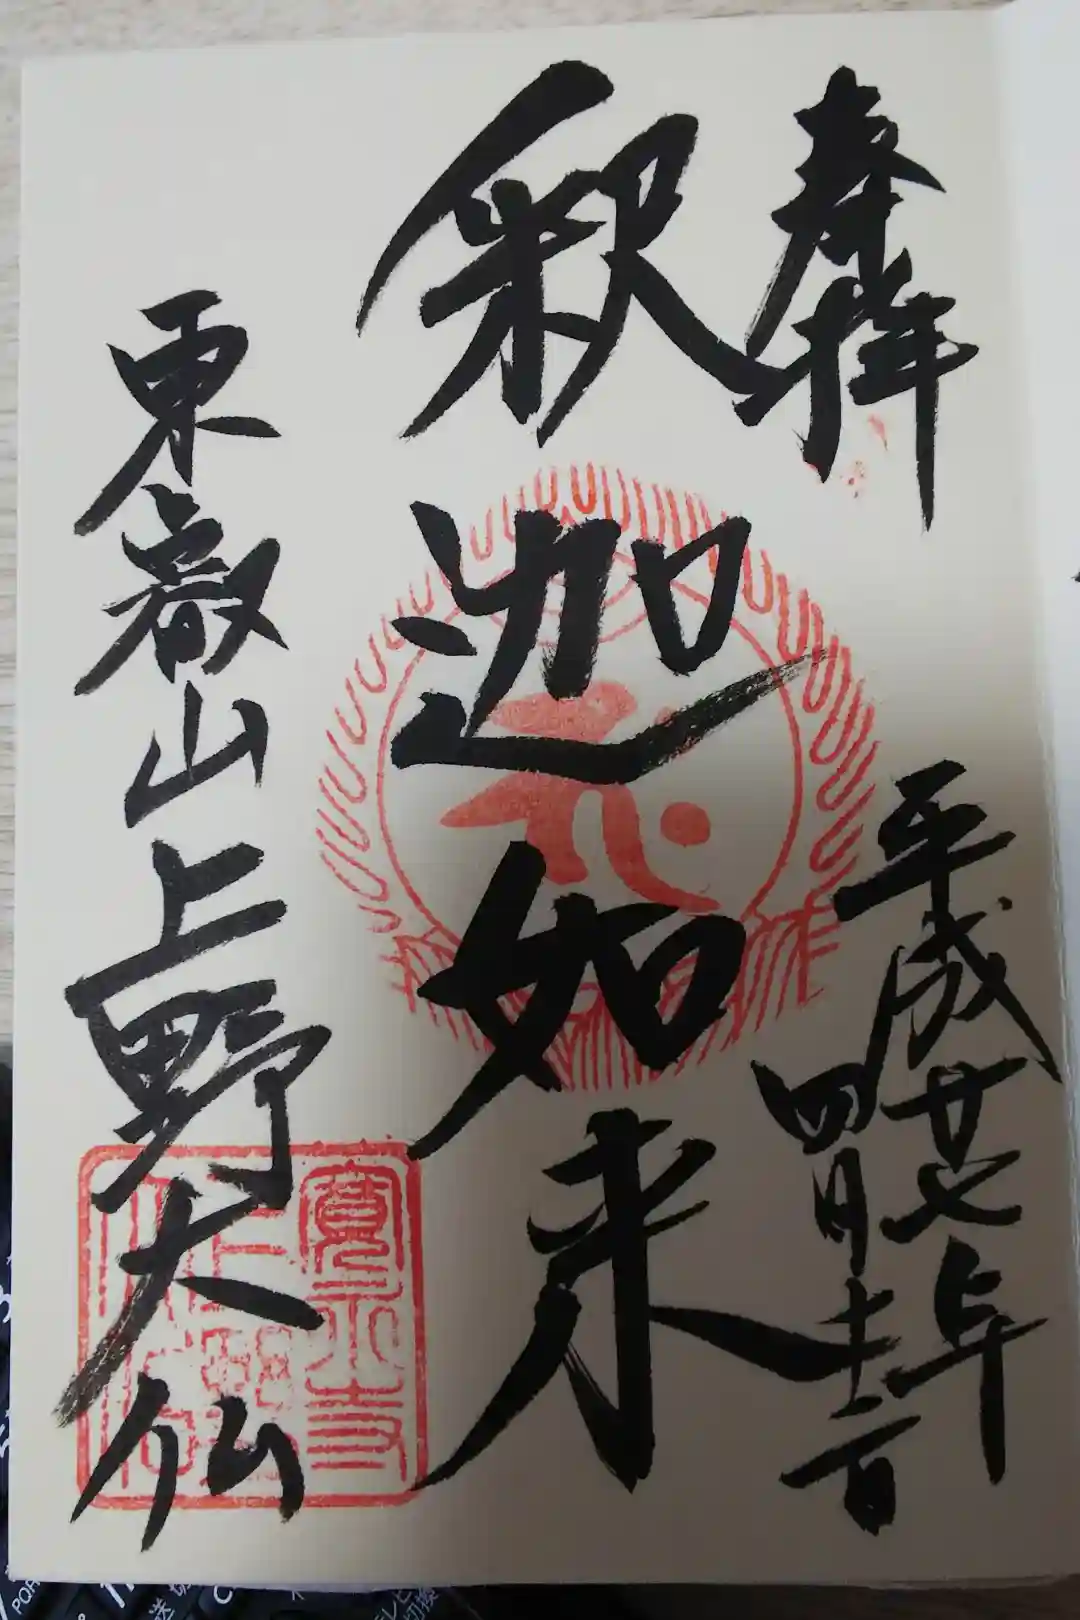 奉拝
平成廿七年
四月十一日
釈迦如来
東叡山上野大仏
寛永寺